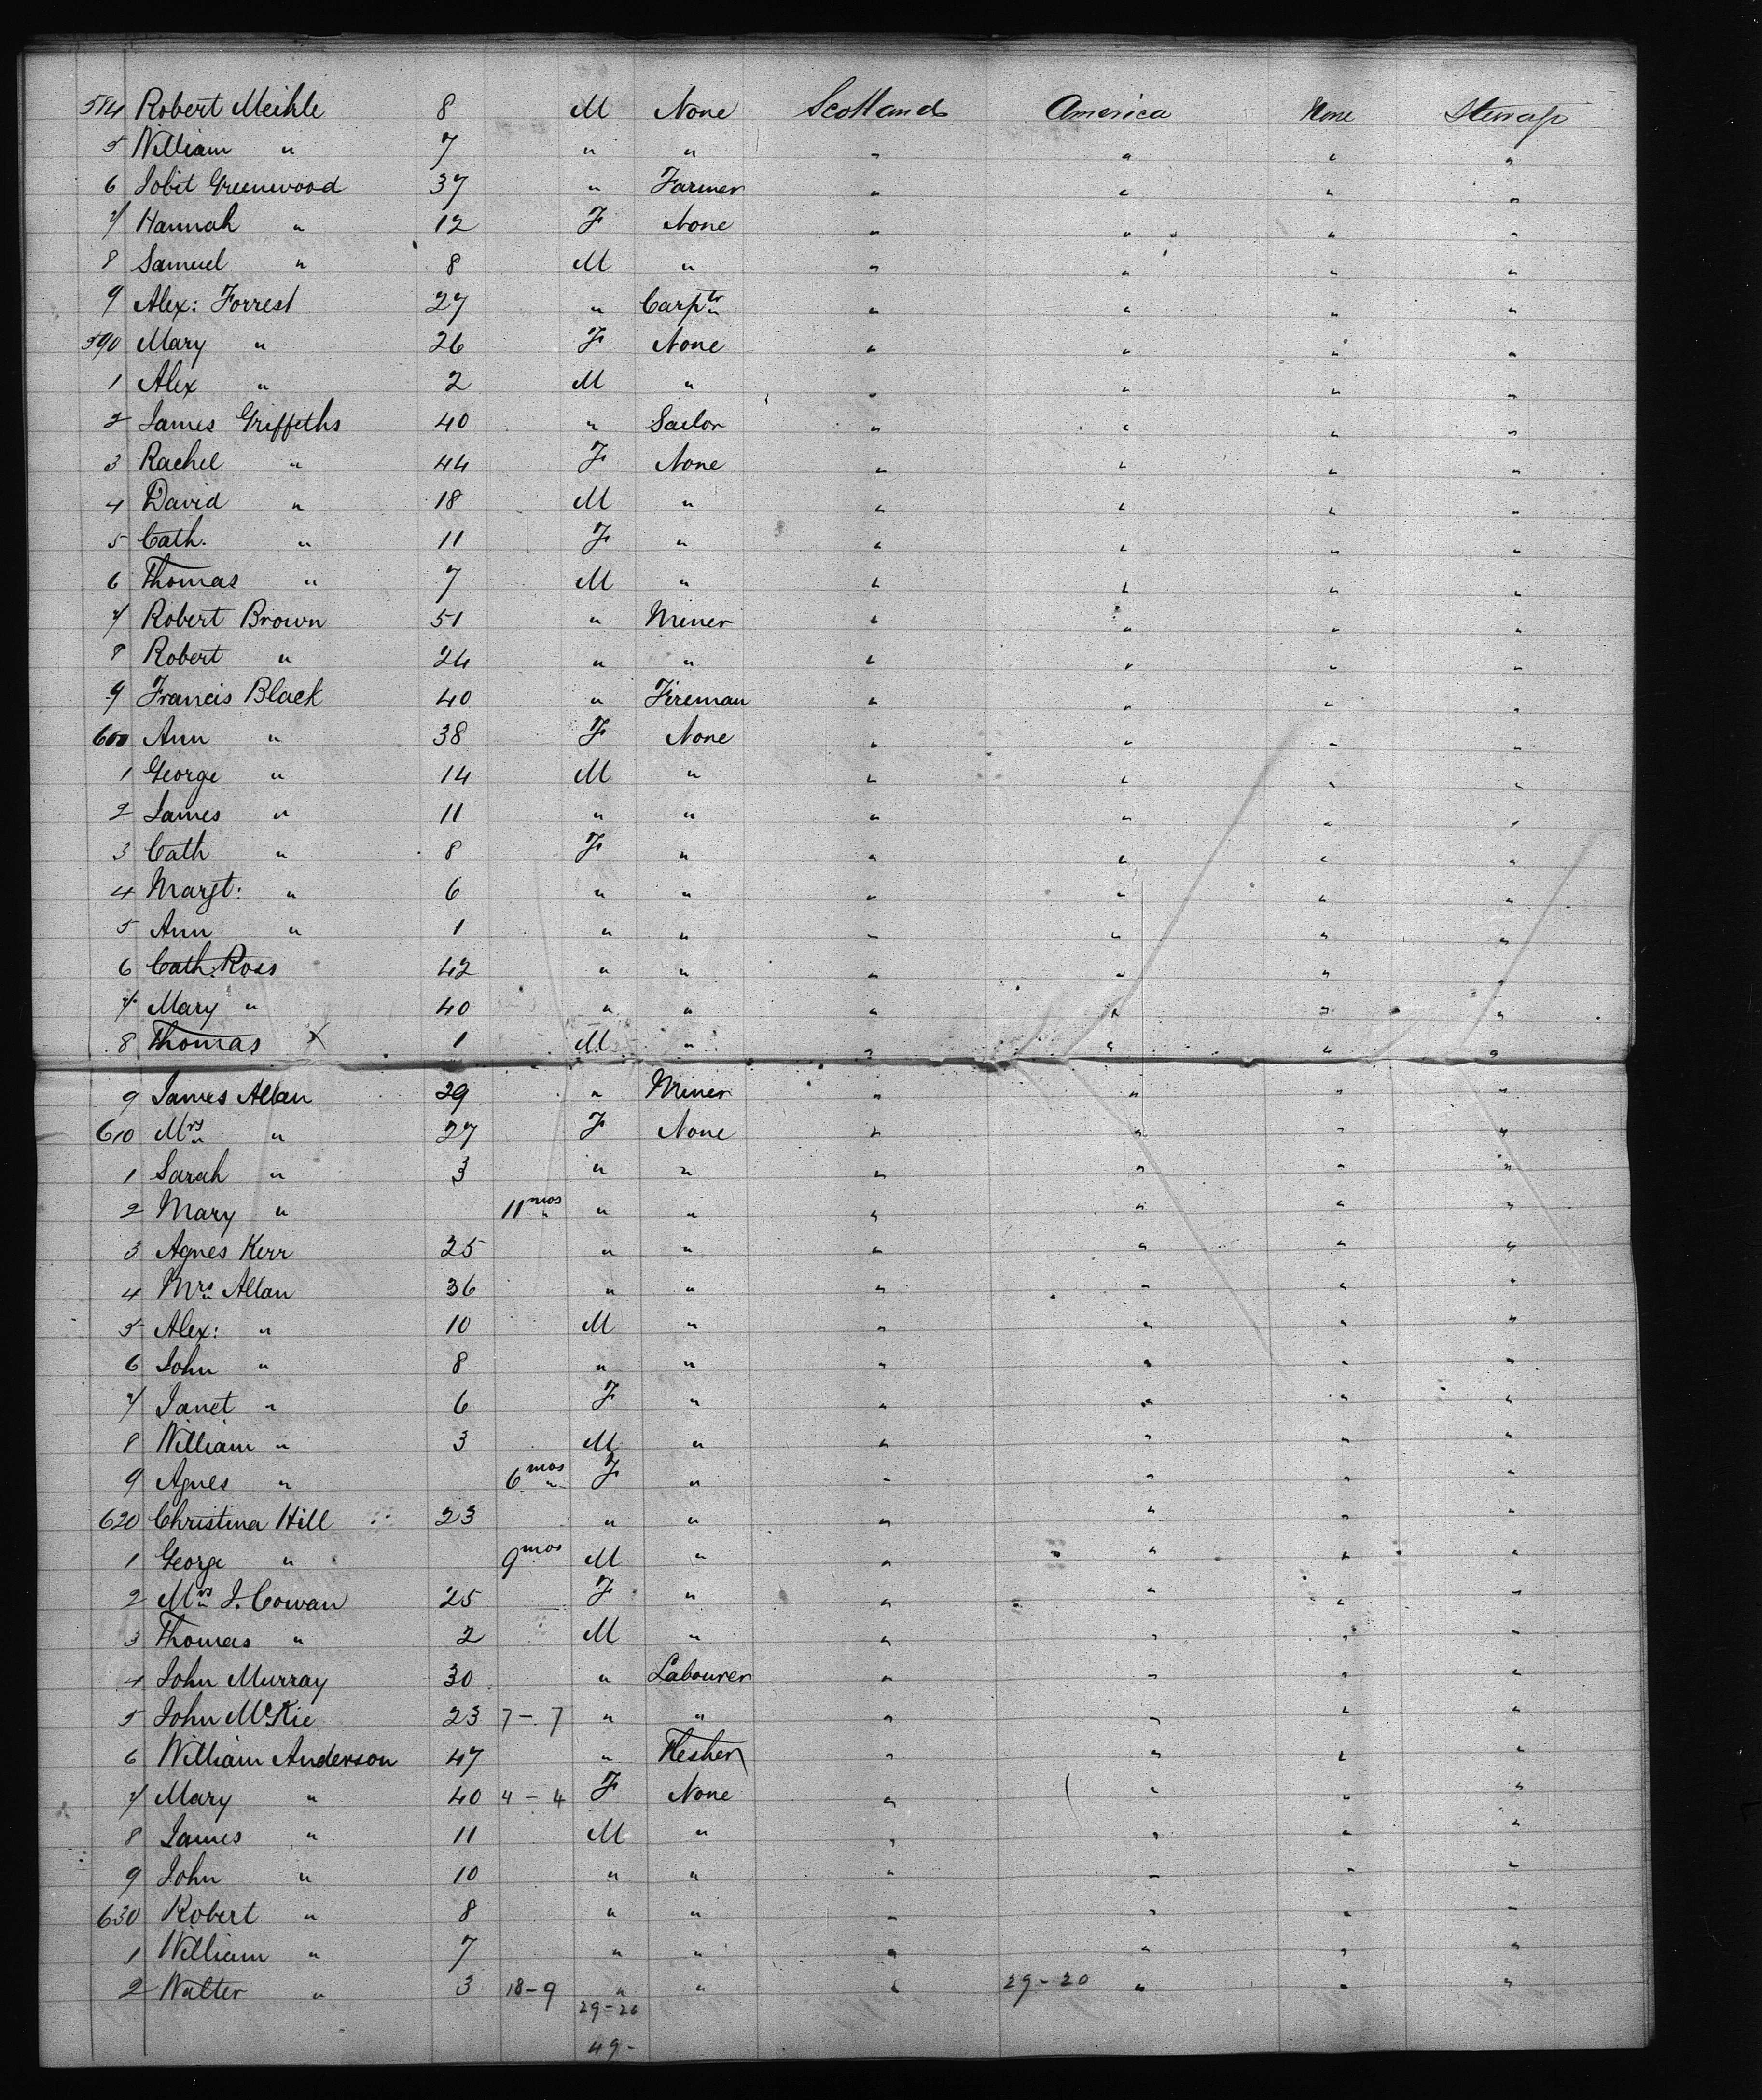 584 Robert Meikle 8 M None Scotland America None Steerage
5 William " 7 " " " " " "
6 Tobit Greenwood 37 " Farmer " " " "
7 Hannah " 12 F None " " " "
8 Samuel " 8 M " " " " "
9 Alex: Forrest 27 " Carptr " " " "
590 Mary " 26 F None " " " "
1 Alex " 2 M " " " " "
2 James Griffiths 40 " Sailor " " " "
3 Rachel " 44 F None " " " "
4 David " 18 M " " " " "
5 Cath. " 11 F " " " " "
6 Thomas " 7 M " " " " "
7 Robert Brown 51 " Miner " " " "
8 Robert " 24 " " " " " "
9 Francis Black 40 " Fireman " " " "
600 Ann " 38 F None " " " "
1 George " 14 M " " " " "
2 James " 11 " " " " " "
3 Cath " 8 F " " " " "
4 Margt: " 6 " " " " " "
5 Ann " 1 " " " " " "
6 Cath: Ross 42 " " " " " "
7 Mary " 40 " " " " " "
8 Thomas X 1 M " " " " "
9 James Allan 29 " Miner " " " "
610 Mrs " 27 F None " " " "
1 Sarah " 3 " " " " " "
2 Mary " 11 mos " " " " " "
3 Agnes Kerr 25 " " " " " "
4 Mrs Allan 36 " " " " " "
5 Alex: " 10 M " " " " "
6 John " 8 " " " " " "
7 Janet " 6 F " " " " "
8 William " 3 M " " " " "
9 Agnes " 6 mos F " " " " "
620 Christina Hill 23 " " " " " "
1 George " 9 mos M " " " " "
2 Mrs J. Cowan 25 F " " " " "
3 Thomas " 2 M " " " " "
4 John Murray 30 " Labourer " " " "
5 John McKie 23 7-7 " " " " " "
6 William Anderson 47 " Flesher " " " "
7 Mary " 40 4-4 F None " " " "
8 James " 11 M " " " " "
9 John " 10 " " " " " "
630 Robert " 8 " " " " " "
1 William " 7 " " " " " "
2 Walter " 3 18-9 " " " 29-20 " " "
29-20
49-